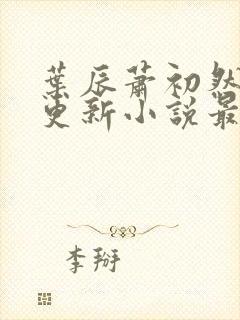 葉辰蕭初然
更新小說最
李掰